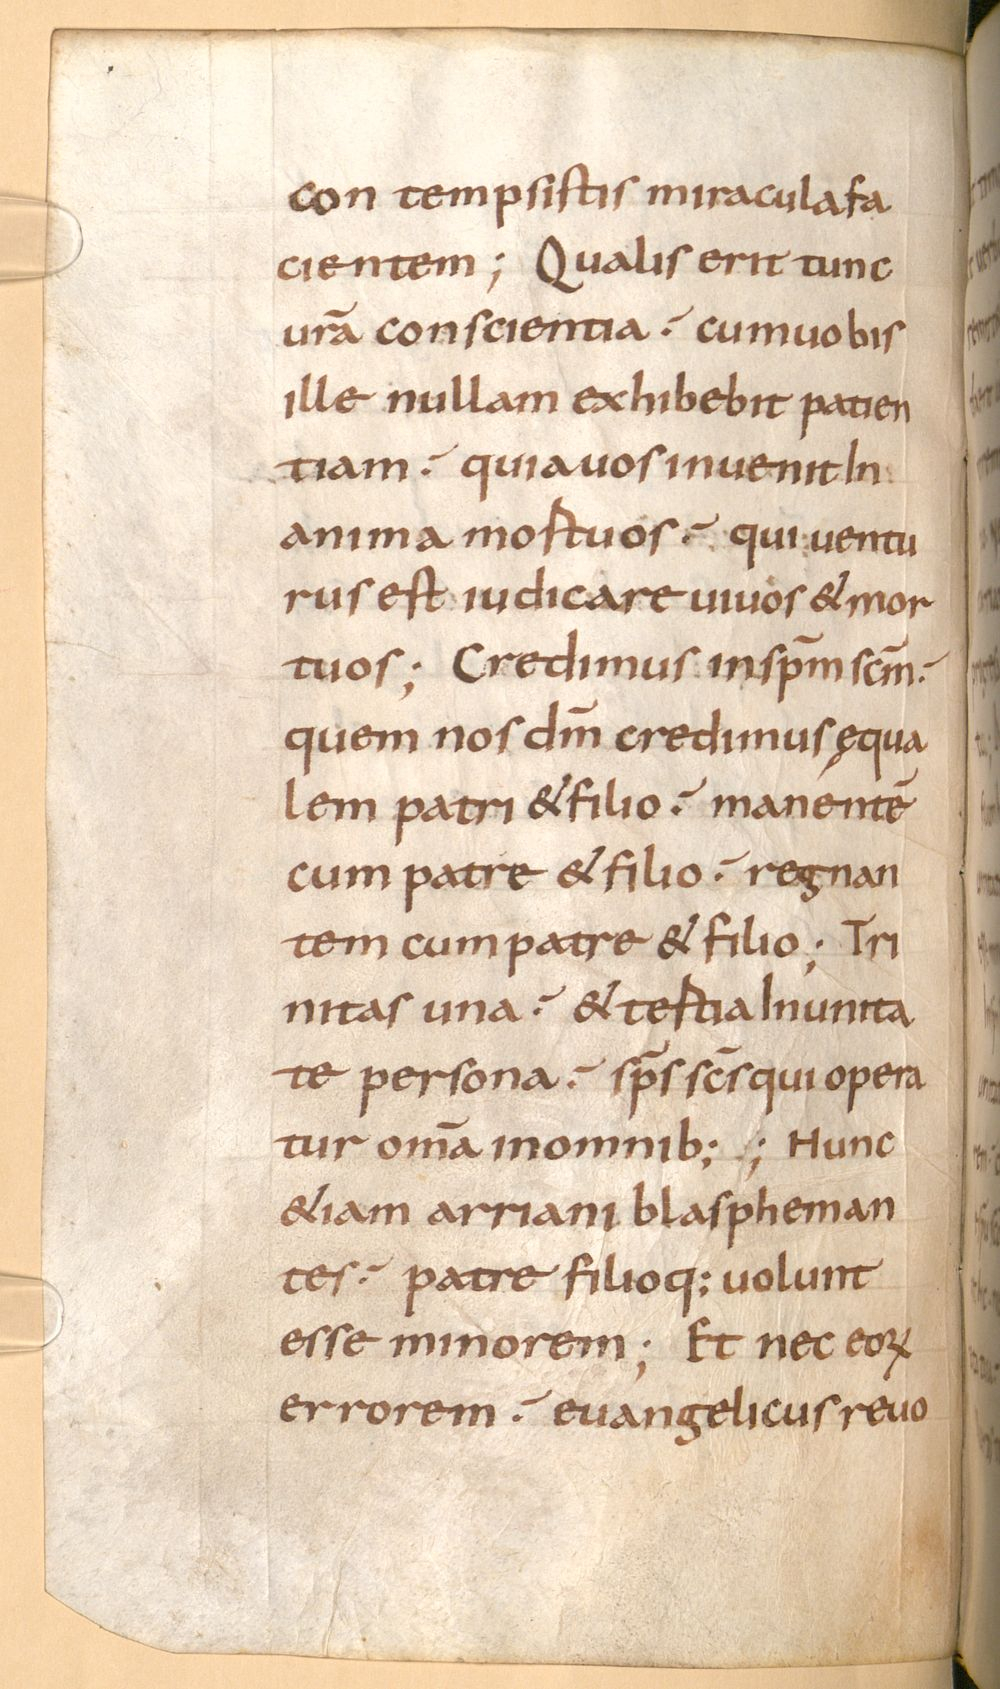 con tempsistis miracula fa
cientem; Qualis erit tunc
urã conscientia· cum uobis
ille nullam exhibebit patien
tiam· quia uos inuenit In
anima mostuos· qui uentu
rus est iudicare uiuos & mor
tuos; Credimus in spm̄ scm̄·
quem nos dm̄ credimus ęqua
lem patri & filio· manentē
cum patre & filio· regnan
tem cum patre & filio; Tri
nitas una· & testia In unita
te persona· sp̄s sc̄s qui opera
tur om̄a in omnib; ; Hunc
&iam arriani blaspheman
tes· patre filioq; uolunt
esse minorem; Et nec eoꝝ
errorem· euangelicus reuo